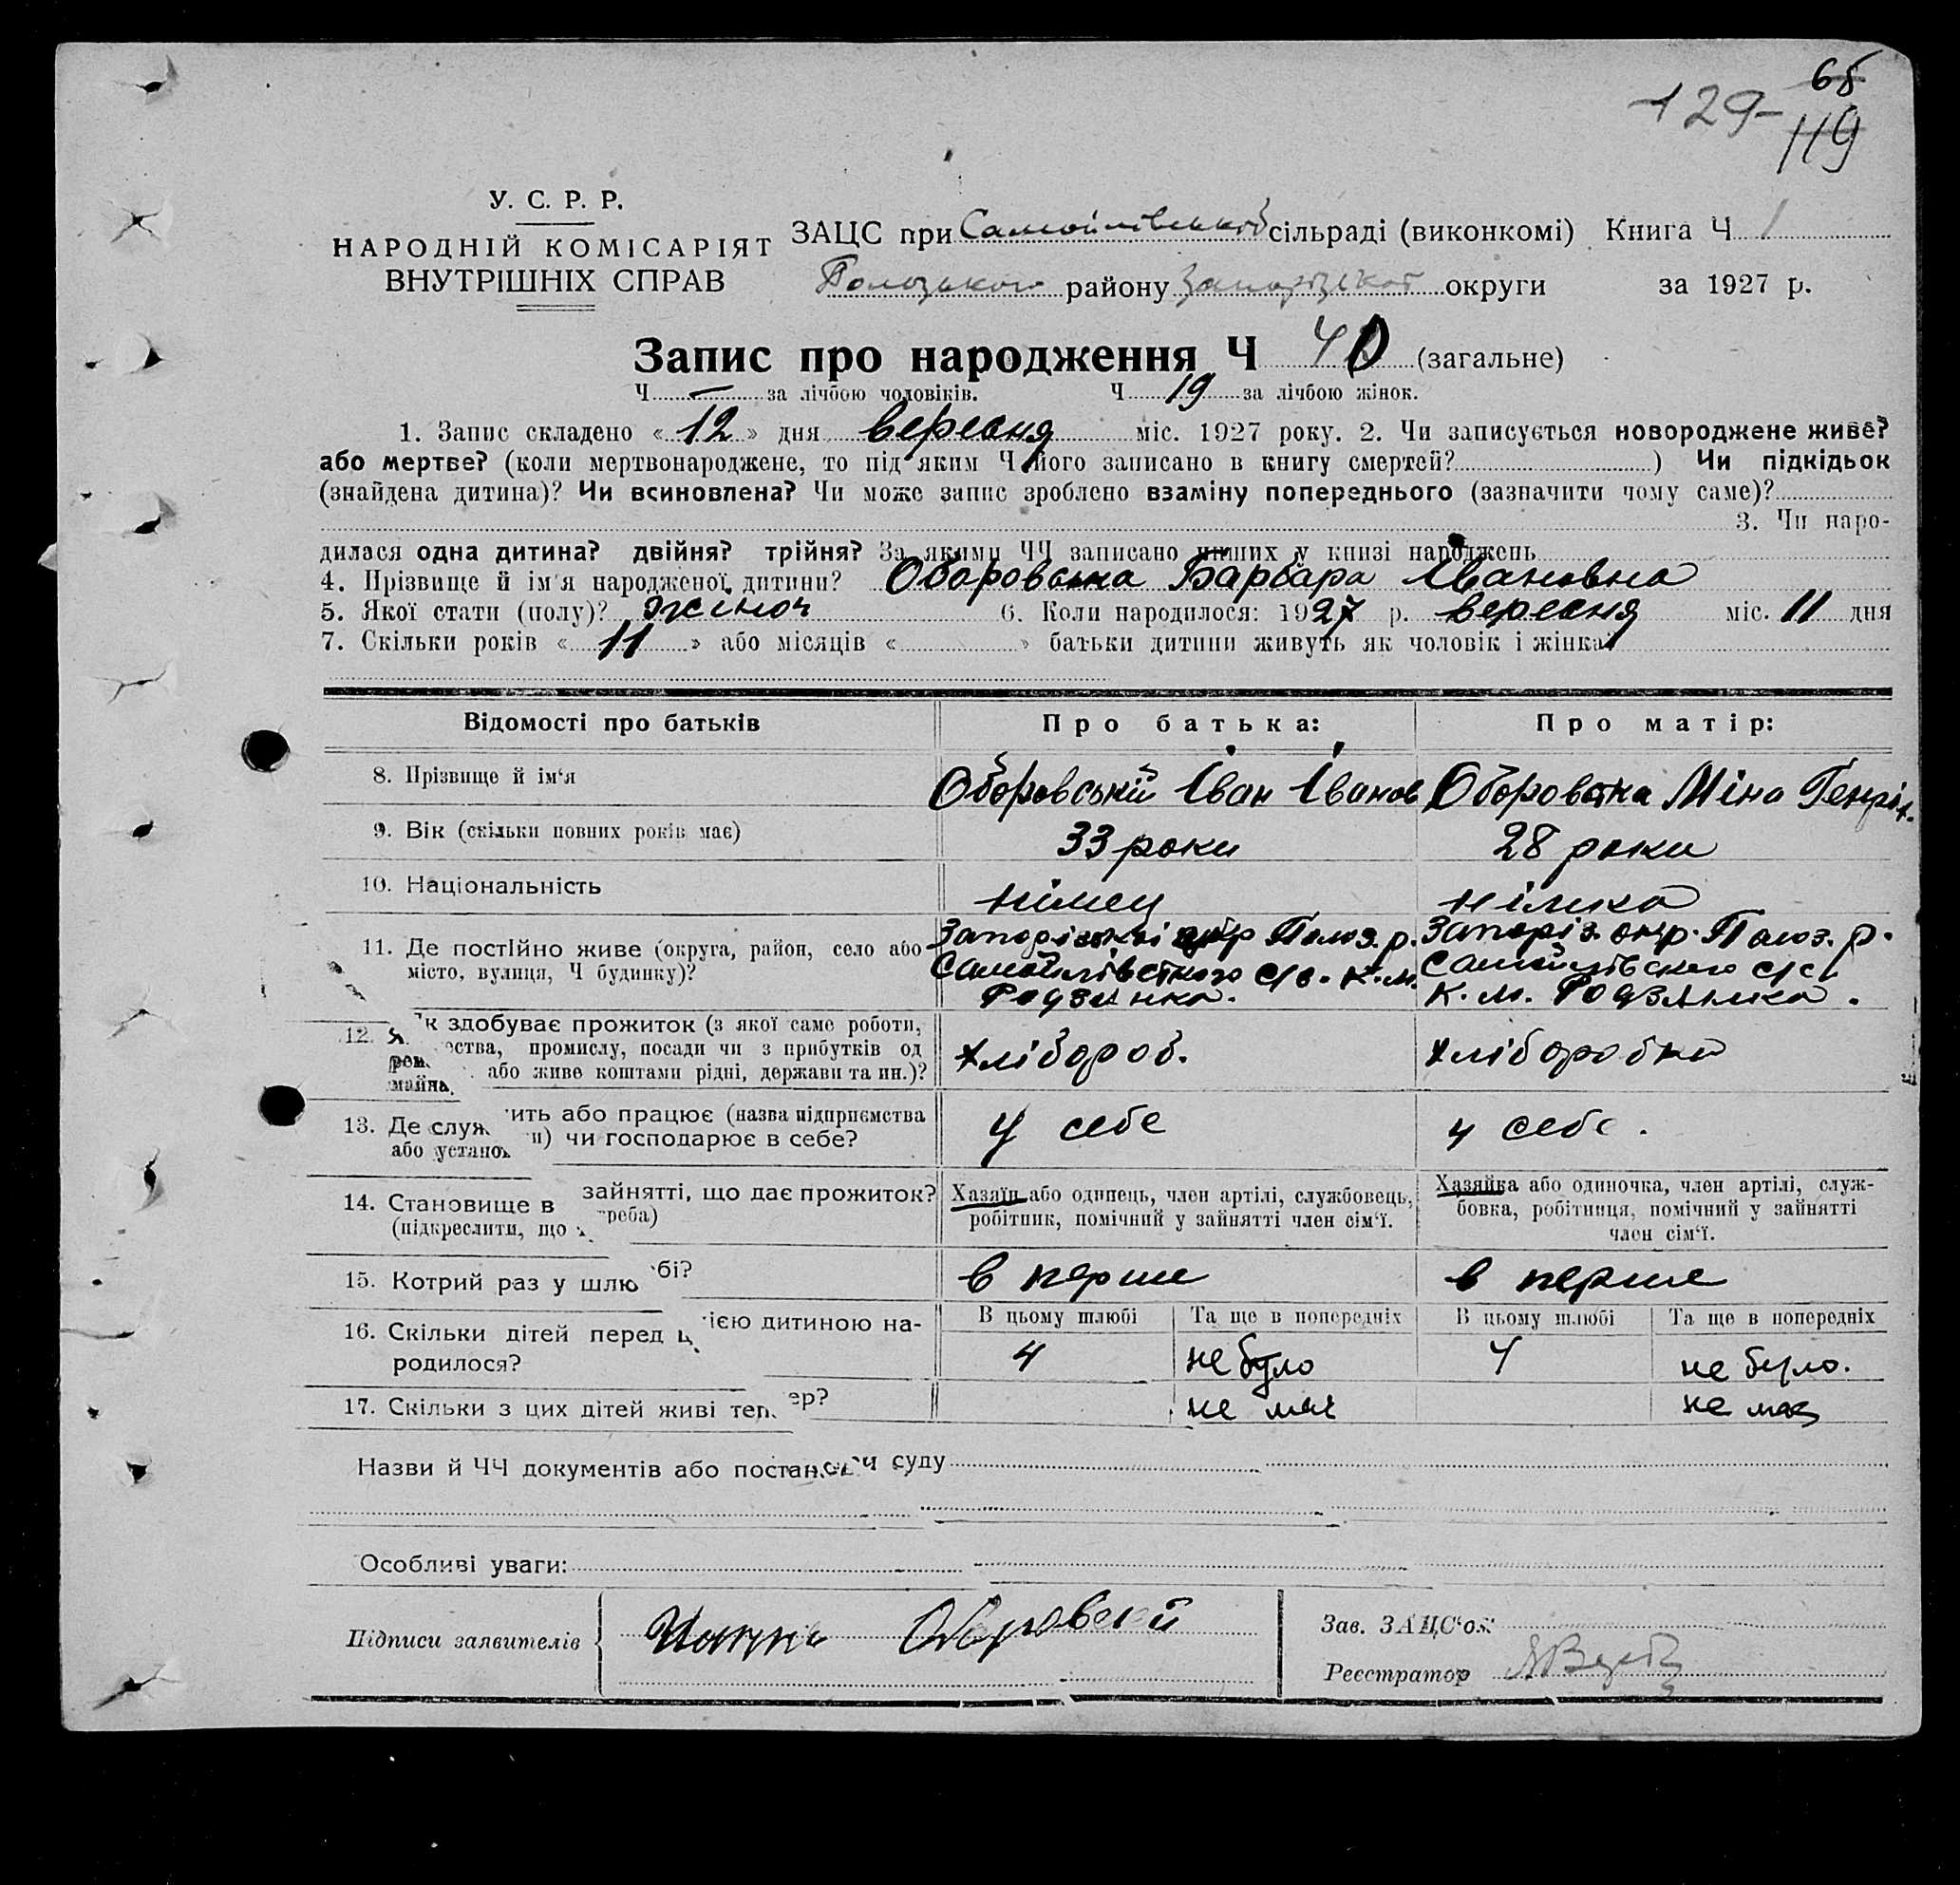 65
129-
119
У. С. Р. Р.
НАРОДНІЙ КОМІСАРІЯТ
ВНУТРІШНІХ СПРАВ
ЗАЦС при Самойлівській сільраді (виконкомі) Книга Ч 1
Пологського району Запорізької округи за 1927 р.
Запис про народження Ч 40 (загальне)
Ч — за лічбою чоловіків. Ч 19 за лічбою жінок.
1. Запис складено « 12 » дня вересня міс. 1927 року. 2. Чи записується новороджене живе?
або мертве? (коли мертвонароджене, то під яким Ч його записано в книгу смертей? ) Чи підкідьок
(знайдена дитина)? Чи всиновлена? Чи може запис зроблено взаміну попереднього (зазначити чому саме)?
3. Чи наро-
дилася одна дитина? двійня? трійня? За якими ЧЧ записано инших у книзі народжень
4. Прізвище й ім'я народженої дитини? Оборовська Барбара Івановна
5. Якої стати (полу)? жіноч 6. Коли народилося: 1927 р. вересня міс. 11 дня
7. Скільки років « 11 » або місяців « » батьки дитини живуть як чоловік і жінка?
Відомості про батьків Про батька: Про матір:
8. Прізвище й ім'я Оборовський Іван Іванов Оборовська Міна Генріх.
9. Вік (скільки повних років має) 33 роки 28 роки
10. Національність німец німка
11. Де постійно живе (округа, район, село або місто, вулиця, Ч будинку)?
Запорізькі окр Полог. р. Самойлівського с/с. к.м.
Запоріз. окр. Полог. р. Самойлівского с/с к. м.
12. Як здобуває прожиток (з якої саме роботи,
ремества, промислу, посади чи з прибутків од
майна, або живе коштами рідні, держави та ин.)?
хлібороб. хліборобка
13. Де служить або працює (назва підприємства
або установи) чи господарює в себе?
у себе у себе.
14. Становище в зайнятті, що дає прожиток?
(підкреслити, що треба)
Хазяїн або одинець, член артілі, службовець,
робітник, помічний у зайнятті член сім'ї.
Хазяйка або одиночка, член артілі, служ-
бовка, робітниця, помічний у зайнятті
член сім'ї.
15. Котрий раз у шлюбі? в перше в перше
16. Скільки дітей перед цією дитиною на-
родилося?
В цьому шлюбі Та ще в попередніх В цьому шлюбі Та ще в попередніх
4 не було 4 не було.
17. Скільки з цих дітей живі тепер? не має не має
Назви й ЧЧ документів або постанови суду
Особливі уваги:
Підписи заявителів Оборовский
Зав. ЗАЦС'ом
Реєстратор